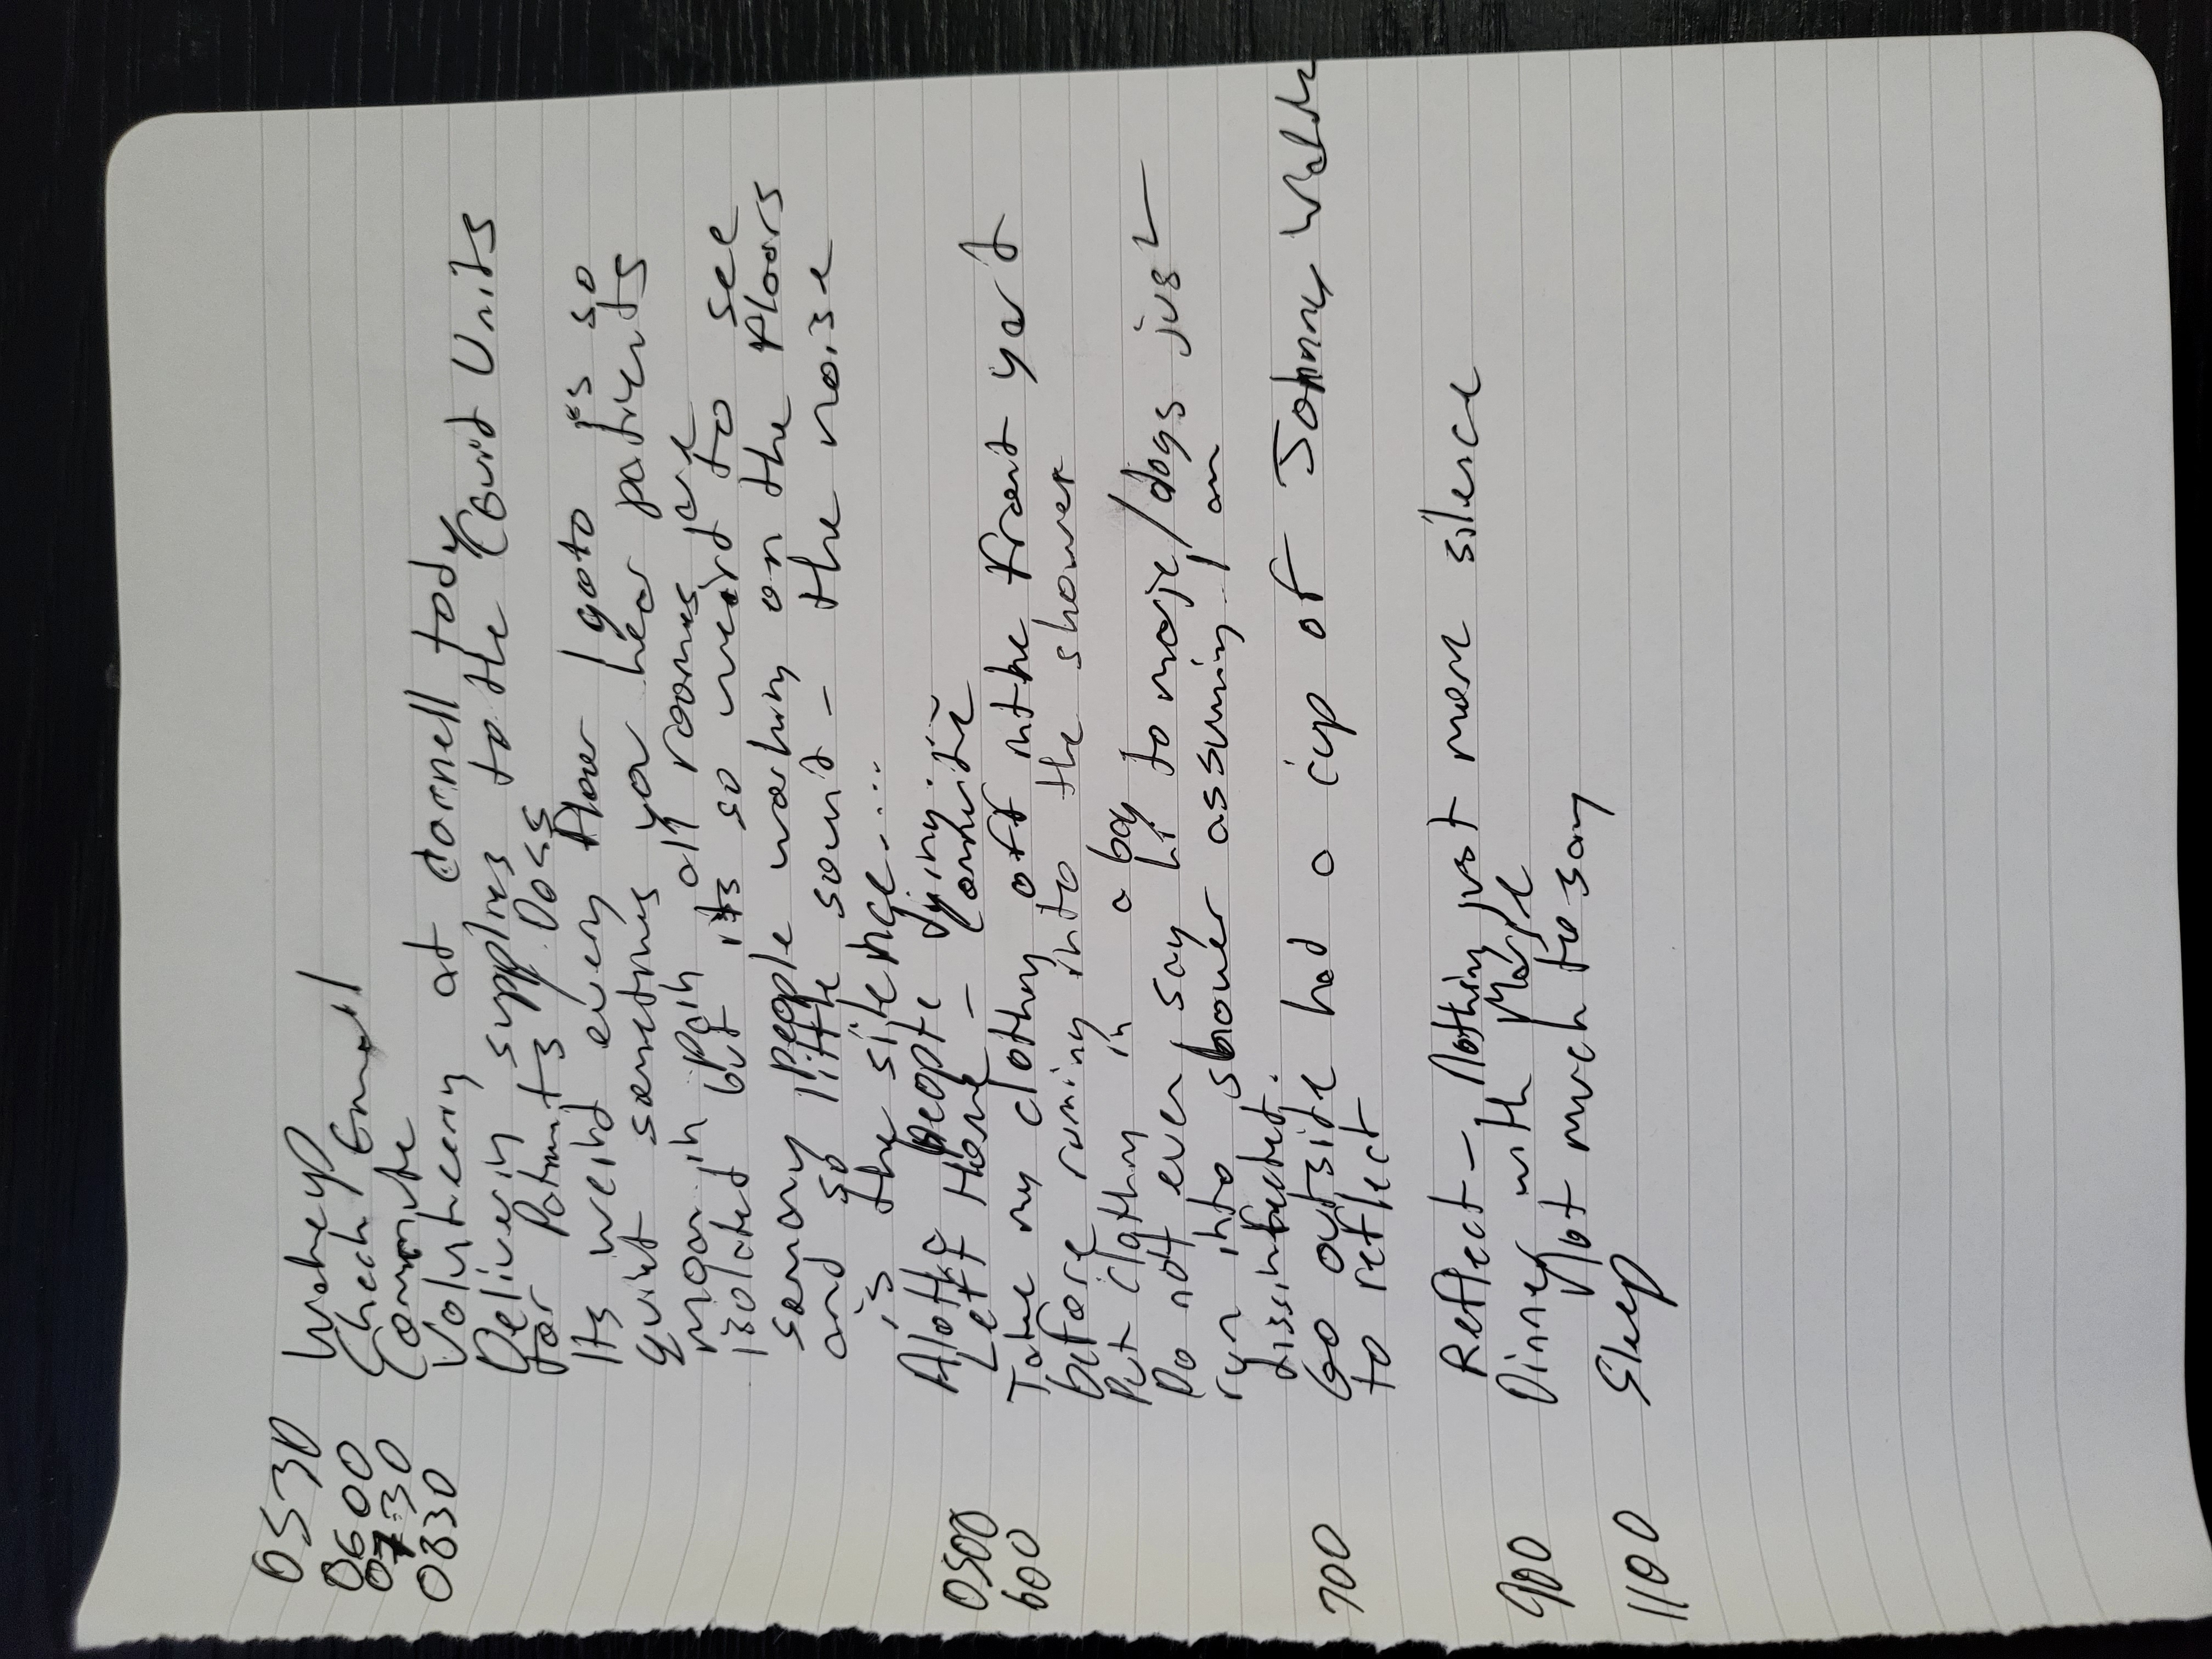 0530 Wakeup
0600 Check Email
0730 Commute
0830 Volunteering at Cornell today
Delivering supplies to the Covid Units
for Patients / Docs
Its weird every floor I go to is so
quiet sometimes you hear patients
moan in pain, all rooms are
isolated but its so weird to see
so many people working on the floors
and so little sound - the noise
is the silence.....
Alotta people dying....
0500 Left Home - Commute
600 Take my clothing off in the front yard
before running into the shower
Put clothing in a bag
Do not even say hi to marje/dogs just
run into shower assuming I am
dissinfected.
700 Go outside had a cup of Johnny Walker
to reflect
Reflect - Nothing just more silence
900 Dinner with Marje
Not much to say
1100 Sleep